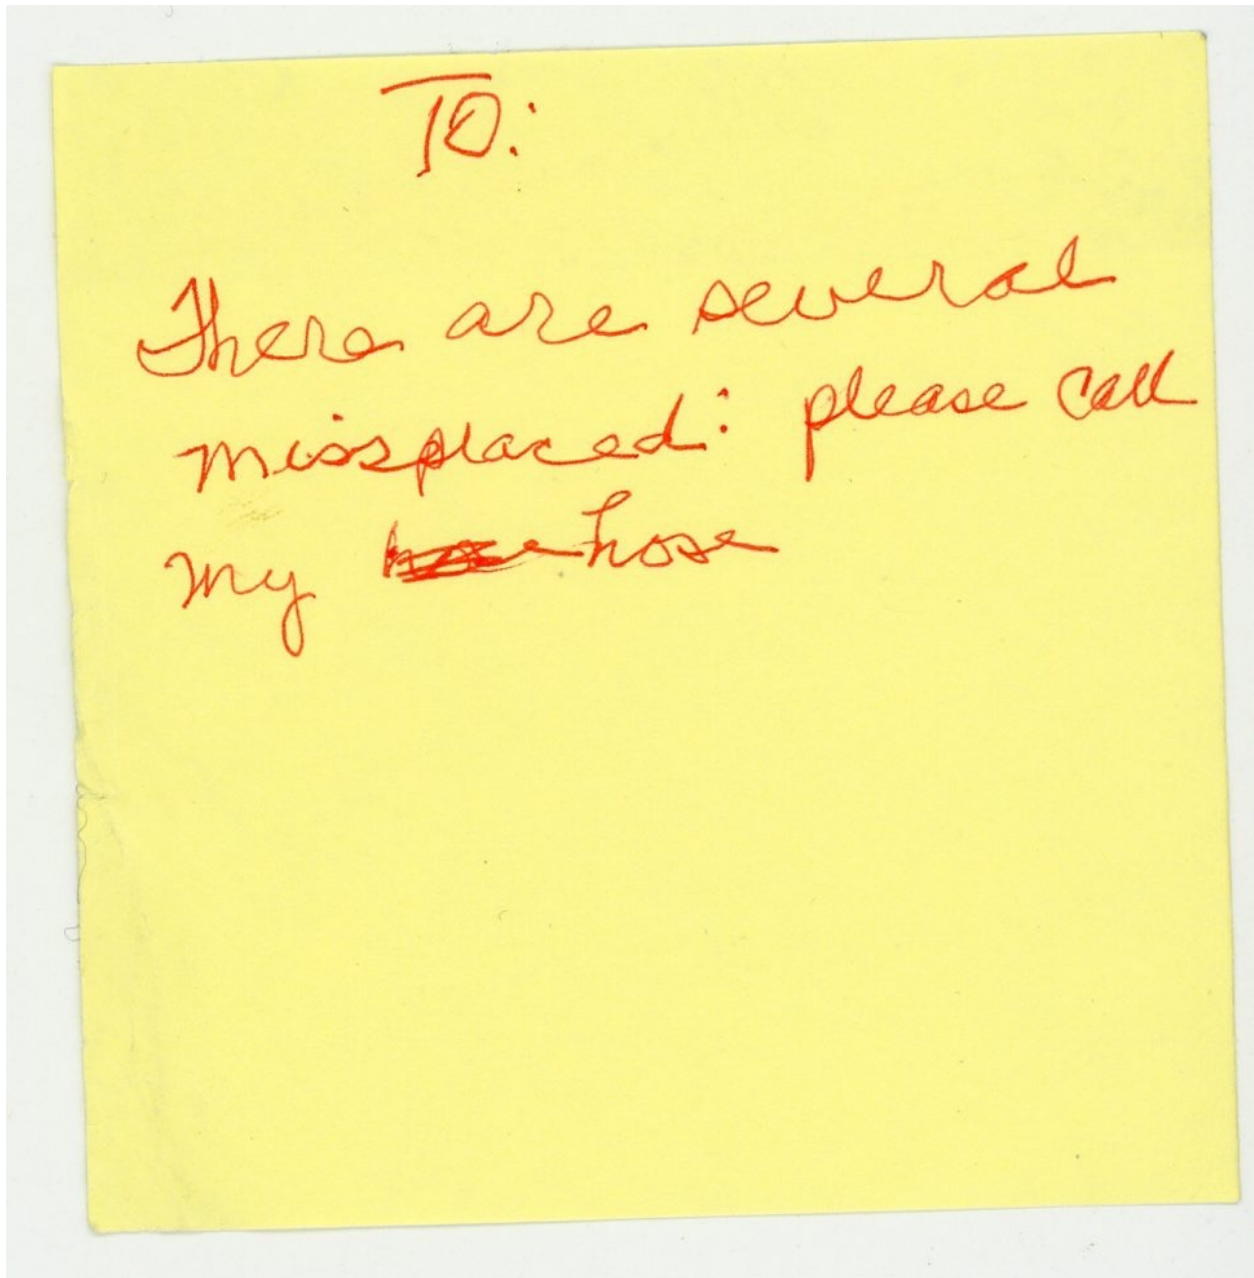 TO:
There are several
missplaced: please call
my hose